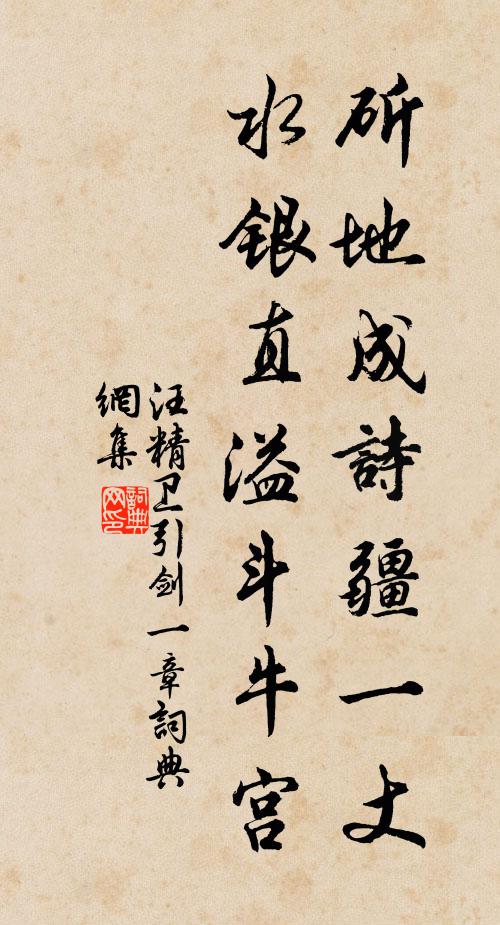 斫地成詩疆一丈
水銀直溢斗牛宫
汪精卫引剑一章詞典
網集
詞典
网印